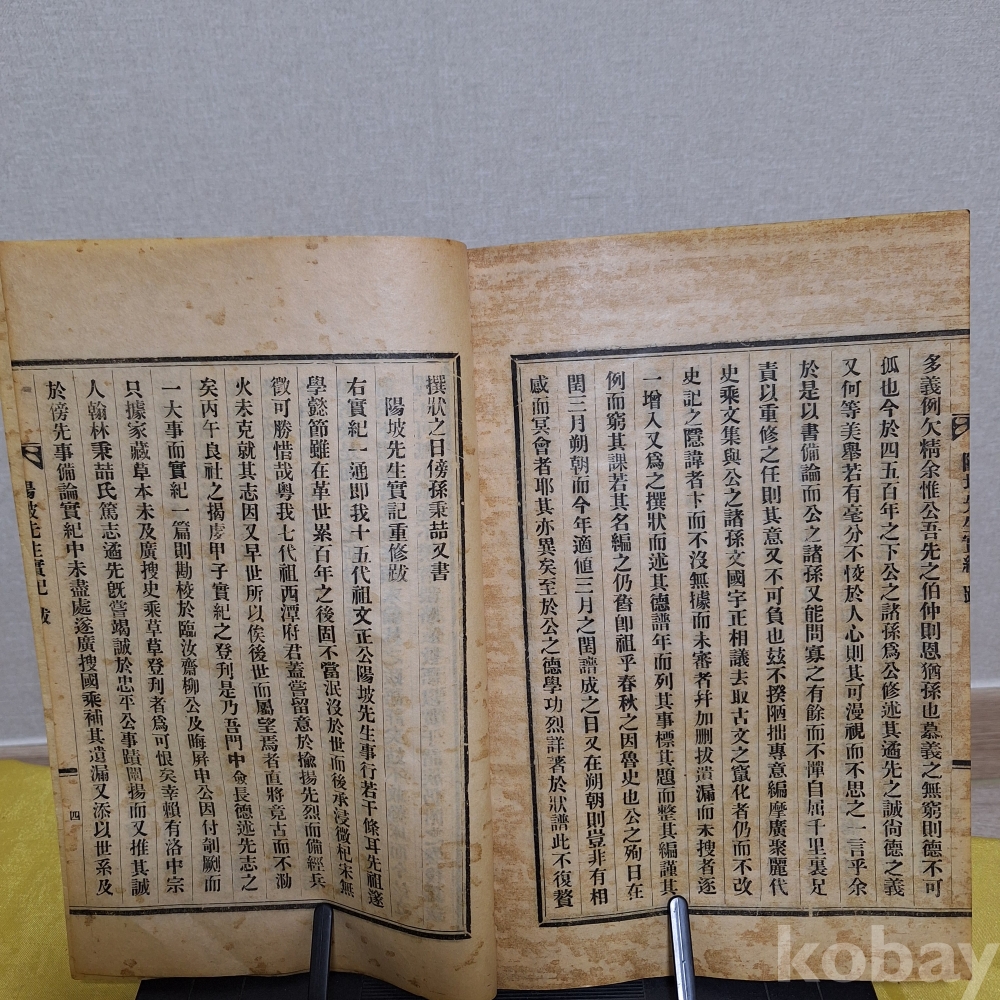 多義例欠精余惟公吾先之伯仲則恩猶孫也慕義之無窮則德不可
孤也今於四五百年之下公之諸孫爲公修述其遹先之誠尙德之義
又何等美擧若有毫分不悛於人心則其可漫視而不思之一言乎余
於是以書備論而公之諸孫又能問寡之有餘而不憚自屈千里裏足
責以重修之任則其意又不可負也玆不揆陋拙專意編摩廣聚麗代
史乘文集與公之諸孫文國字正相議去取古文之竄化者仍而不改
史記之隱諱者卞而不沒無據而未審者幷加删拔潰漏而未搜者逐
一增入又爲之撰狀而述其德譜年而列其事標其題而整其編謹其
例而窮其課若其名編之仍舊卽祖乎春秋之因魯史也公之殉日在
閏三月朔朝而今年適値三月之閏譜成之日又在朔朝則豈非有相
感而冥會者耶其亦異矣至於公之德學功烈詳著於狀譜此不復贅
撰狀之日傍孫秉喆又書
陽坡先生實記重修跋
右實紀一通卽我十五代祖文正公陽坡先生事行若干條耳先祖邃
學懿節雖在革世累百年之後固不當泯沒於世而後承浸微杞宋無
徵可勝惜哉粤我七代祖西潭府君蓋嘗留意於揄揚先烈而備經兵
火未克就其志因又早世所以俟後世而屬望焉者直將竟古而不泐
矣丙午良社之揭虔甲子實紀之登刋是乃吾門中僉長德述先志之
一大事而實紀一篇則勘校於臨汝齋柳公及晦屛申公因付剞劂而
只據家藏草本未及廣搜史乘草草登刋者爲可恨矣幸賴有洛中宗
人翰林秉喆氏篤志遹先旣嘗竭誠於忠平公事蹟闡揚而又推其誠
於傍先事備論實紀中未盡處遂廣搜國乘補其遺漏又添以世系及
陽坡先生實記 跋
四
kobay